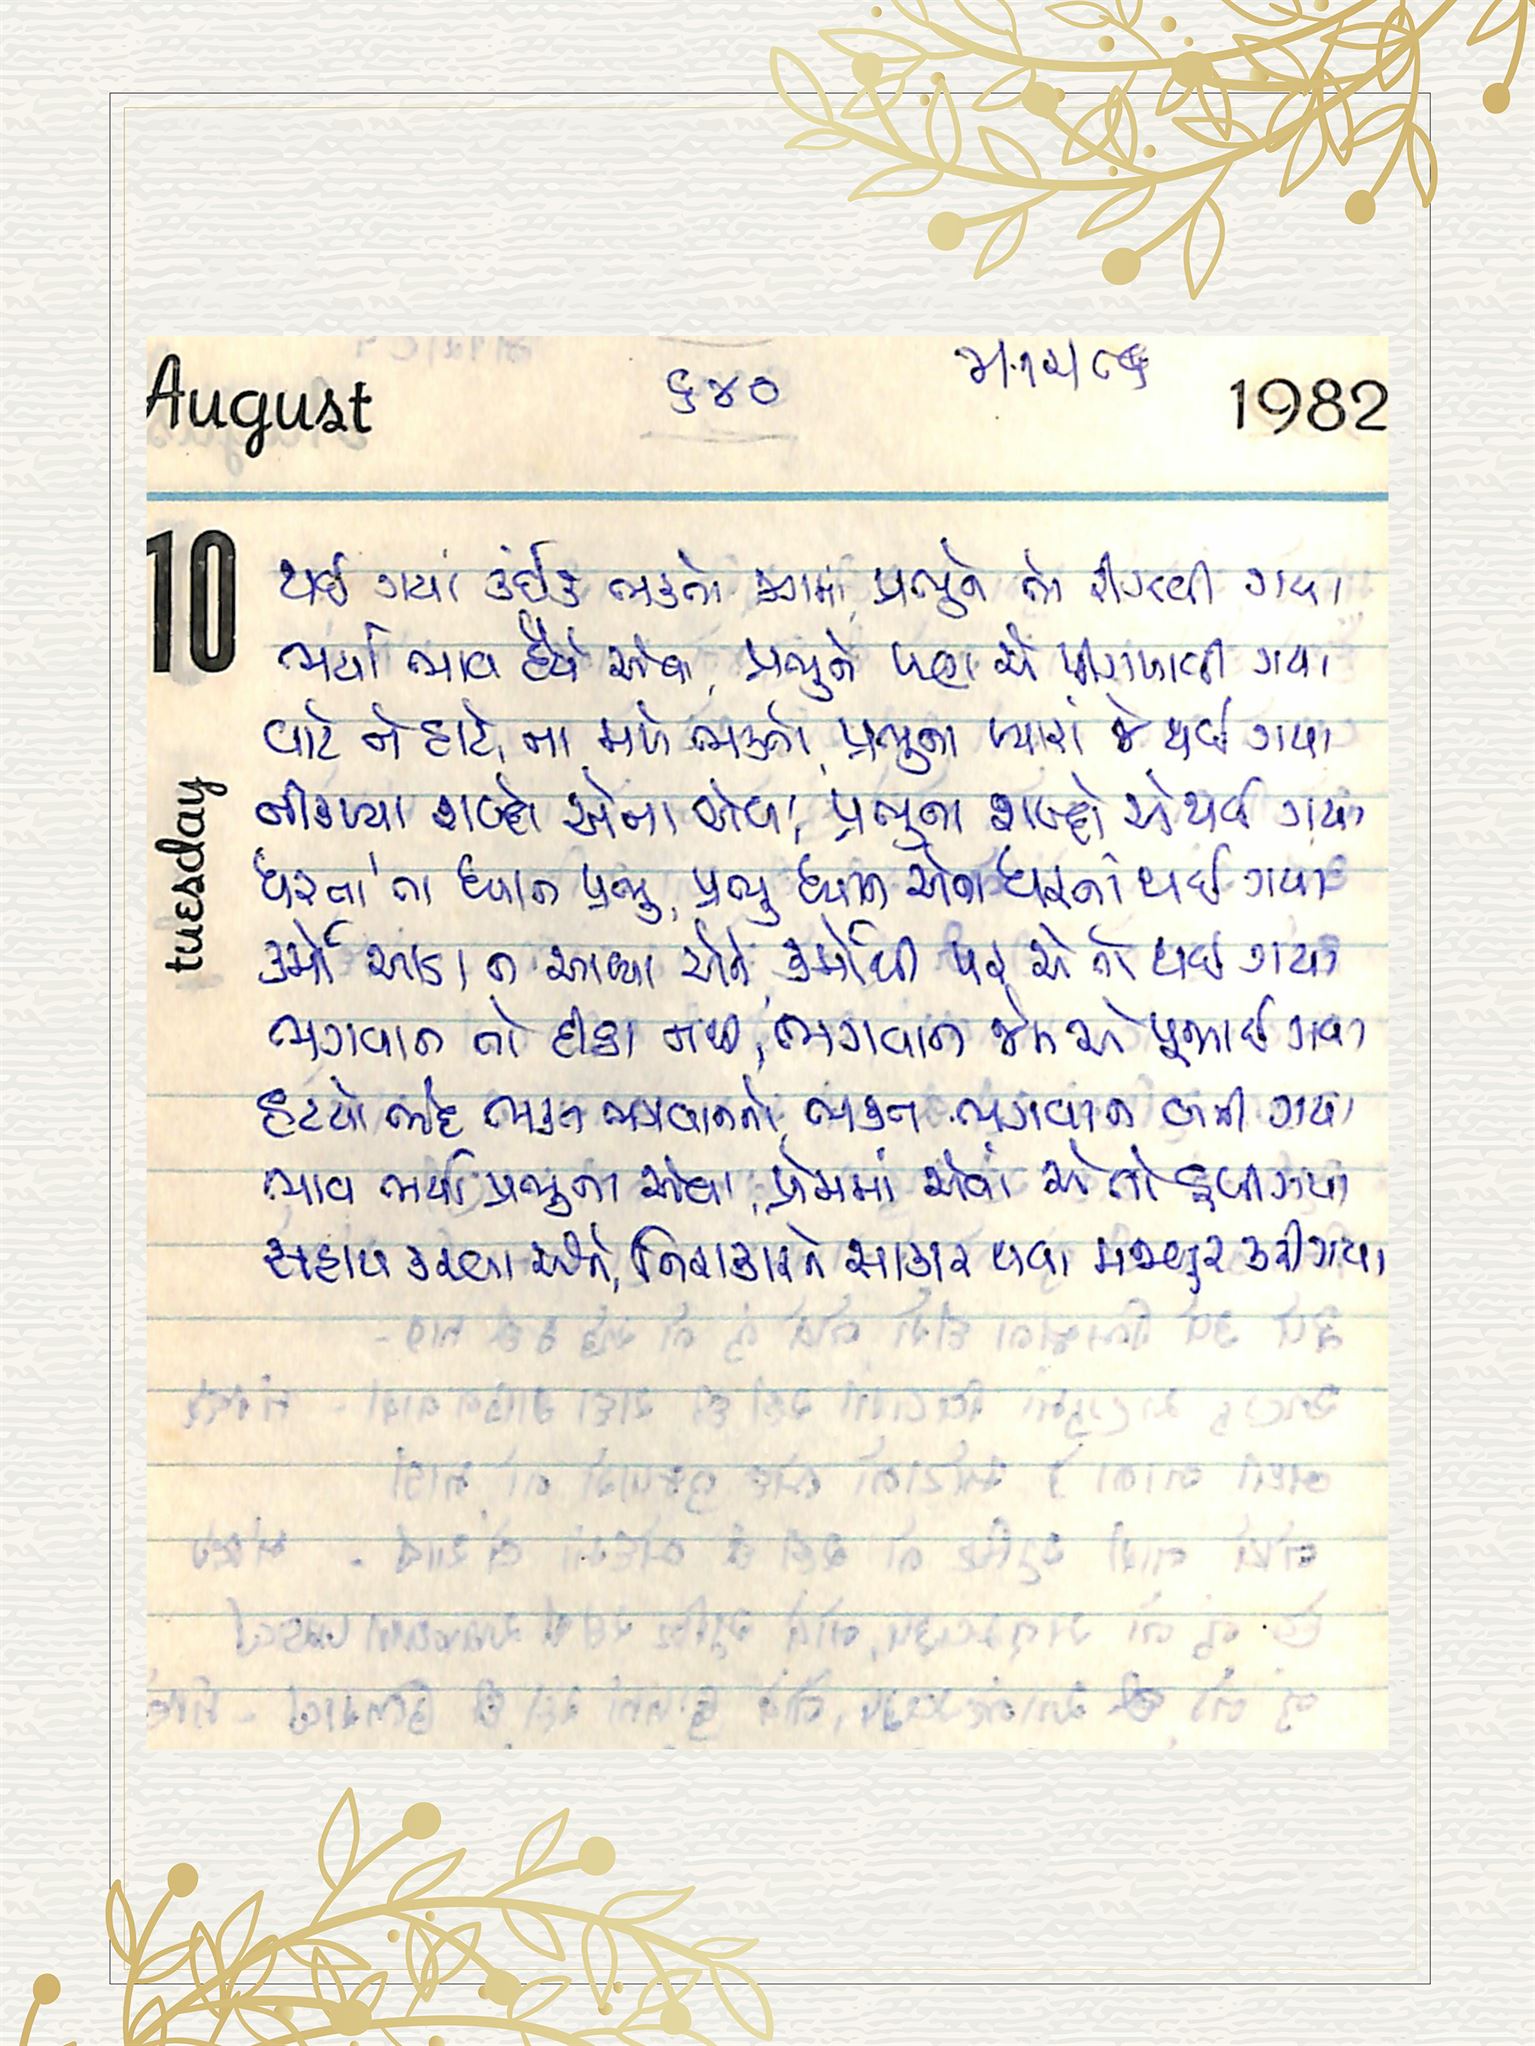 August
૬૪૦
૪/૧૨/૮૬
1982
10
tuesday
થઈ ગયાં કંઈક ભક્તો જગમાં, પ્રભુને તો રીઝવી ગયા
ભર્યા ભાવ હૈયે એવા, પ્રભુને પણ એ પીગળાવી ગયા
વાટે ને હાટે, ના મળે ભક્તો, પ્રભુના પ્યારાં જે થઈ ગયા
નીકળ્યા શબ્દો એના એવા, પ્રભુના શબ્દો એ થઈ ગયા
ધરતાં'તા ધ્યાન પ્રભુ, પ્રભુ ધ્યાન એના ધરતાં થઈ ગયા
કર્મો આડા ન આવ્યા એને, કર્મોથી પર એ તો થઈ ગયા
ભગવાન તો દીઠા નથી, ભગવાન જેમ એ પૂજાઈ ગયા
હટયો ભેદ ભક્ત ભગવાનનો, ભક્ત ભગવાન બની ગયા
ભાવ ભર્યા પ્રભુના એવા, પ્રેમમાં એવાં એ તો ડૂબી ગયા
સહાય કરવા એને, નિરાકારને સાકાર થવા મજબૂર કરી ગયા